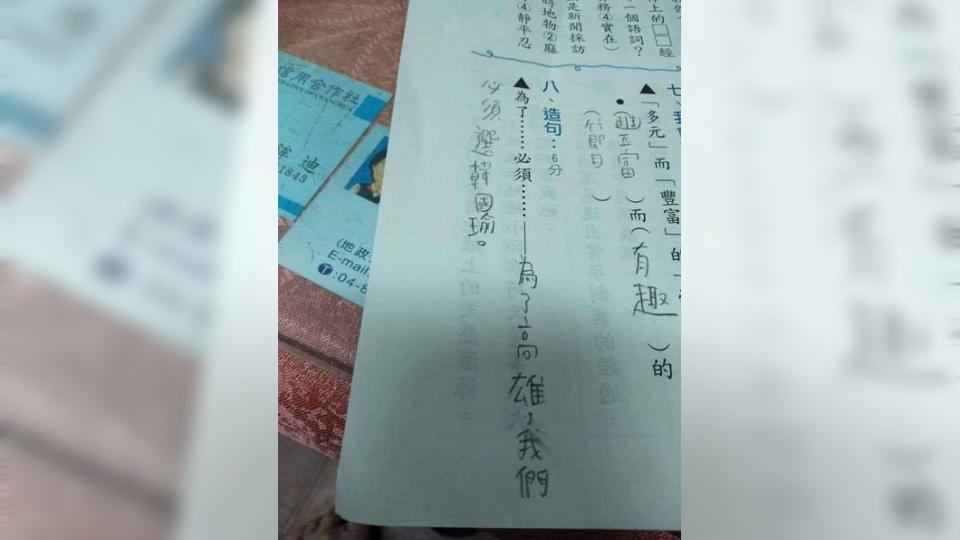 務④實在）
是新聞採訪
時地物②麻
④靜平忍
一個語詞？
上的□□經
七、
▲「多元」而「豐富」的
●（豐富）而（有趣）的
（節目）
八、造句：6分
▲為了……必須……——為了高雄，我們
必須選韓國瑜。
信用合作社
迪
1843
(地政
E-mail
T:04-8